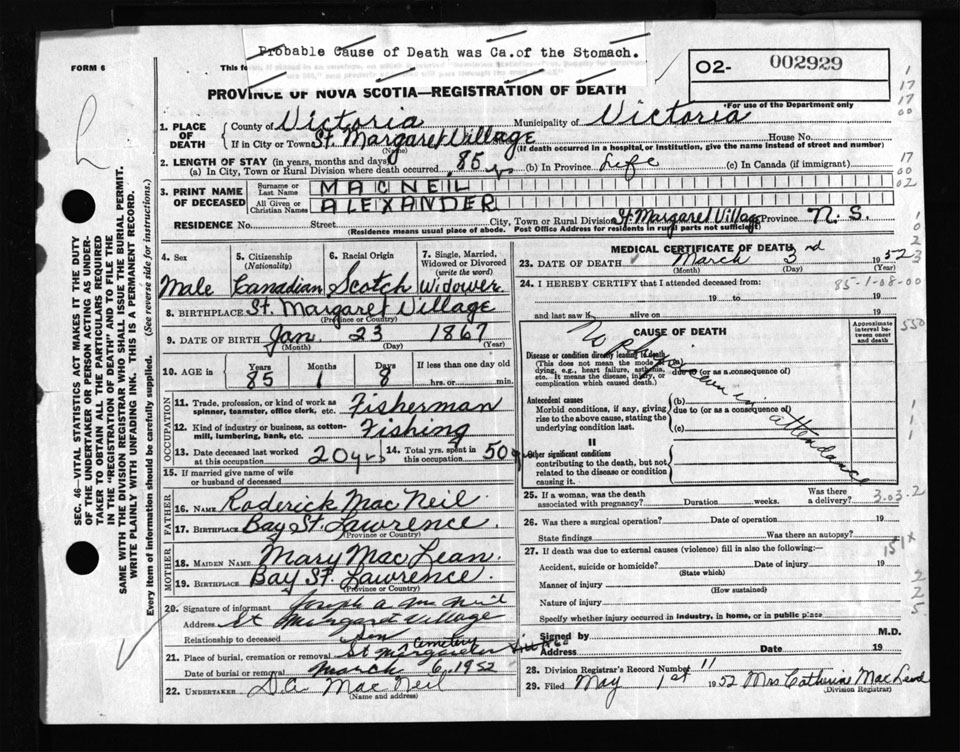 Probable Cause of Death was Ca.of the Stomach.
FORM 6
This fo
02- 002929
PROVINCE OF NOVA SCOTIA—REGISTRATION OF DEATH
*For use of the Department only
1. PLACE OF DEATH
County of Victoria Municipality of Victoria
If in City or Town St. Margaret Village House No.
(Name) (If death occurred in a hospital or institution, give the name instead of street and number)
2. LENGTH OF STAY (in years, months and days)
(a) In City, Town or Rural Division where death occurred 85 yrs (b) In Province Life (c) In Canada (if immigrant)
3. PRINT NAME OF DECEASED
Surname or Last Name MACNEIL
All Given or Christian Names ALEXANDER
RESIDENCE No. Street City, Town or Rural Division St. Margaret Village Province N.S.
(Residence means usual place of abode. Post Office Address for residents in rural parts not sufficient)
4. Sex Male
5. Citizenship (Nationality) Canadian
6. Racial Origin Scotch
7. Single, Married, Widowed or Divorced (write the word) Widower
8. BIRTHPLACE St. Margaret Village
(Province or Country)
9. DATE OF BIRTH Jan. 23 1867
(Month) (Day) (Year)
10. AGE in Years Months Days
85 1 8 hrs. or min.
OCCUPATION
11. Trade, profession, or kind of work as spinner, teamster, office clerk, etc. Fisherman
12. Kind of industry or business, as cotten-mill, lumbering, bank, etc. Fishing
13. Date deceased last worked at this occupation 20 yrs 14. Total yrs. spent in this occupation 50 yrs
15. If married give name of wife or husband of deceased
FATHER
16. NAME Roderick MacNeil
17. BIRTHPLACE Bay St. Lawrence
(Province or Country)
MOTHER
18. MAIDEN NAME Mary MacLean
19. BIRTHPLACE Bay St. Lawrence
(Province or Country)
20. Signature of informant Joseph A. McNeil
Address St Margaret Village
Relationship to deceased Son
21. Place of burial, cremation or removal St. Margarets Cemetery
Date of burial or removal March 6, 1952
22. UNDERTAKER D.A. MacNeil
(Name and address)
MEDICAL CERTIFICATE OF DEATH
23. DATE OF DEATH March 3rd 1952
(Month) (Day) (Year)
24. I HEREBY CERTIFY that I attended deceased from:
85-1-08-00
19 to 19
and last saw h alive on 19
CAUSE OF DEATH
Approximate interval between onset and death
Disease or condition directly leading to death
(This does not mean the mode of dying, e.g., heart failure, asthenia, etc. It means the disease, injury, or complication which caused death.)
due to (or as a consequence of)
Antecedent causes
Morbid conditions, if any, giving rise to the above cause, stating the underlying condition last.
(b)
due to (or as a consequence of)
(c)
II
Other significant conditions
contributing to the death, but not related to the disease or condition causing it.
No Physician in attendance
25. If a woman, was the death associated with pregnancy? Duration weeks. Was there a delivery?
26. Was there a surgical operation? Date of operation 19
State findings Was there an autopsy?
27. If death was due to external causes (violence) fill in also the following:—
Accident, suicide or homicide? Date of injury 19
(State which)
Manner of injury
(How sustained)
Nature of injury
Specify whether injury occurred in industry, in home, or in public place
Signed by M.D.
Address Date 19
28. Division Registrar's Record Number 11
29. Filed May 1st 1952 Mrs Catherine MacLeod
(Division Registrar)
SEC. 46—VITAL STATISTICS ACT MAKES IT THE DUTY
OF THE UNDERTAKER OR PERSON ACTING AS UNDER-
TAKER TO OBTAIN ALL THE PARTICULARS REQUIRED
IN THE "REGISTRATION OF DEATH" AND TO FILE THE
SAME WITH THE DIVISION REGISTRAR WHO SHALL ISSUE THE BURIAL PERMIT.
WRITE PLAINLY WITH UNFADING INK. THIS IS A PERMANENT RECORD.
Every item of information should be carefully supplied. (See reverse side for instructions.)
1
17
17
00
17
00
02
1
0
2
3
550
1
1
1
3.03.2
151X
2
2
5